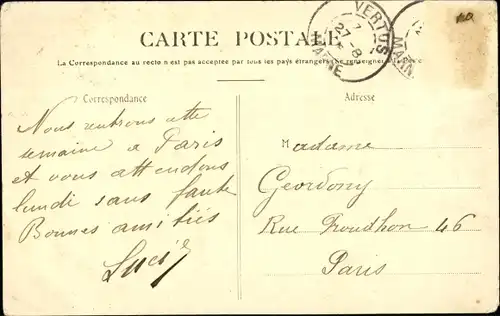 CARTE POSTALE
La Correspondance au recto n'est pas acceptée par tous les pays étrangers (Se renseigner
VERTUS
27 - 8
MARNE
MARN
Correspondance
Adresse
Nous rentrons cette
semaine à Paris
et vous attendons
lundi sans faute
Bonnes amitiés
Madame
Geordony
Rue Proudhon 46
Paris